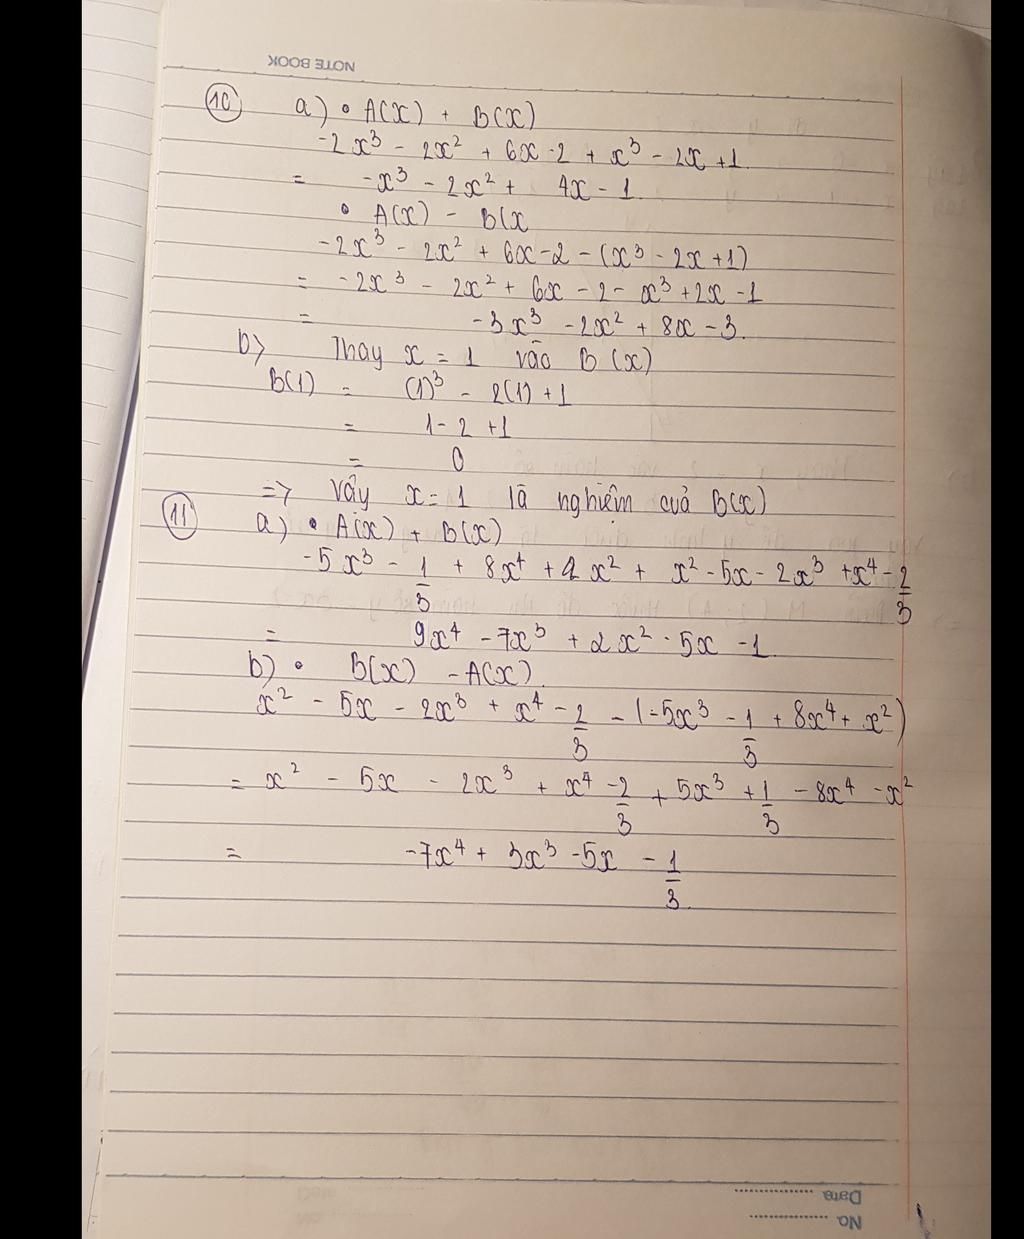 NOTE BOOK
10 a) • A(x) + B(x)
-2x³ - 2x² + 6x - 2 + x³ - 2x + 1
= -x³ - 2x² + 4x - 1.
• A(x) - B(x
-2x³ - 2x² + 6x - 2 - (x³ - 2x + 1)
= -2x³ - 2x² + 6x - 2 - x³ + 2x - 1
= -3x³ - 2x² + 8x - 3.
b) Thay x = 1 vào B(x)
B(1) = (1)³ - 2(1) + 1
= 1 - 2 + 1
= 0
=> Vậy x = 1 là nghiệm cuả B(x)
11 a) • A(x) + B(x)
-5x³ - 1/3 + 8x⁴ + 2x² + x² - 5x - 2x³ + x⁴ - 2/3
= 9x⁴ - 7x³ + 2x² - 5x - 1
b) • B(x) - A(x).
x² - 5x - 2x³ + x⁴ - 2/3 - (-5x³ - 1/3 + 8x⁴ + x²)
= x² - 5x - 2x³ + x⁴ - 2/3 + 5x³ + 1/3 - 8x⁴ - x²
= -7x⁴ + 3x³ - 5x - 1/3.
Date
No.